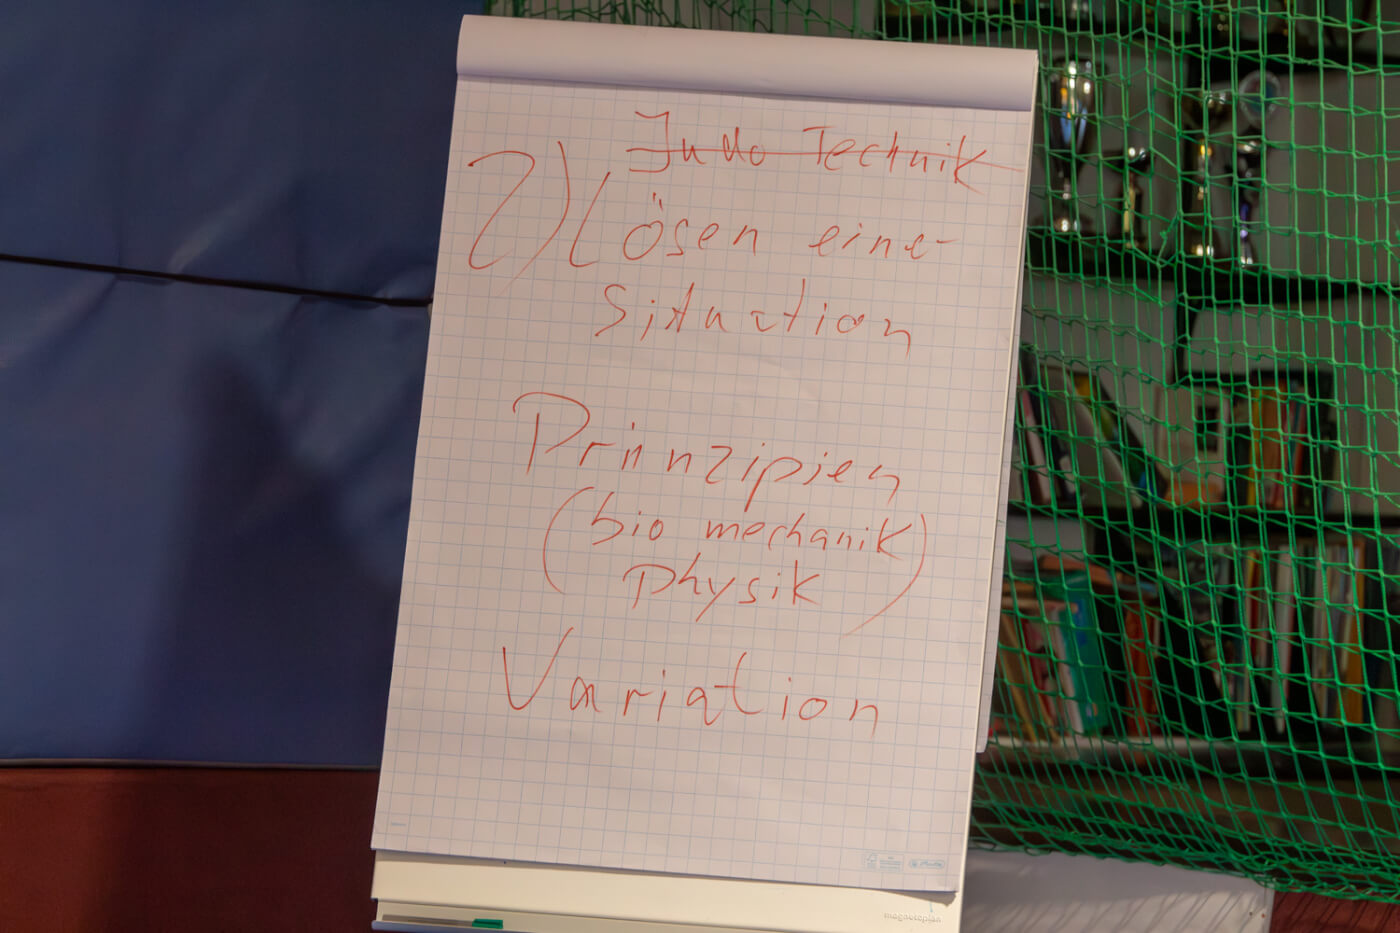 Judo Technik
2) Lösen eine
Situation
Prinzipien
(bio mechanik)
physik
Variation
magnetoplan